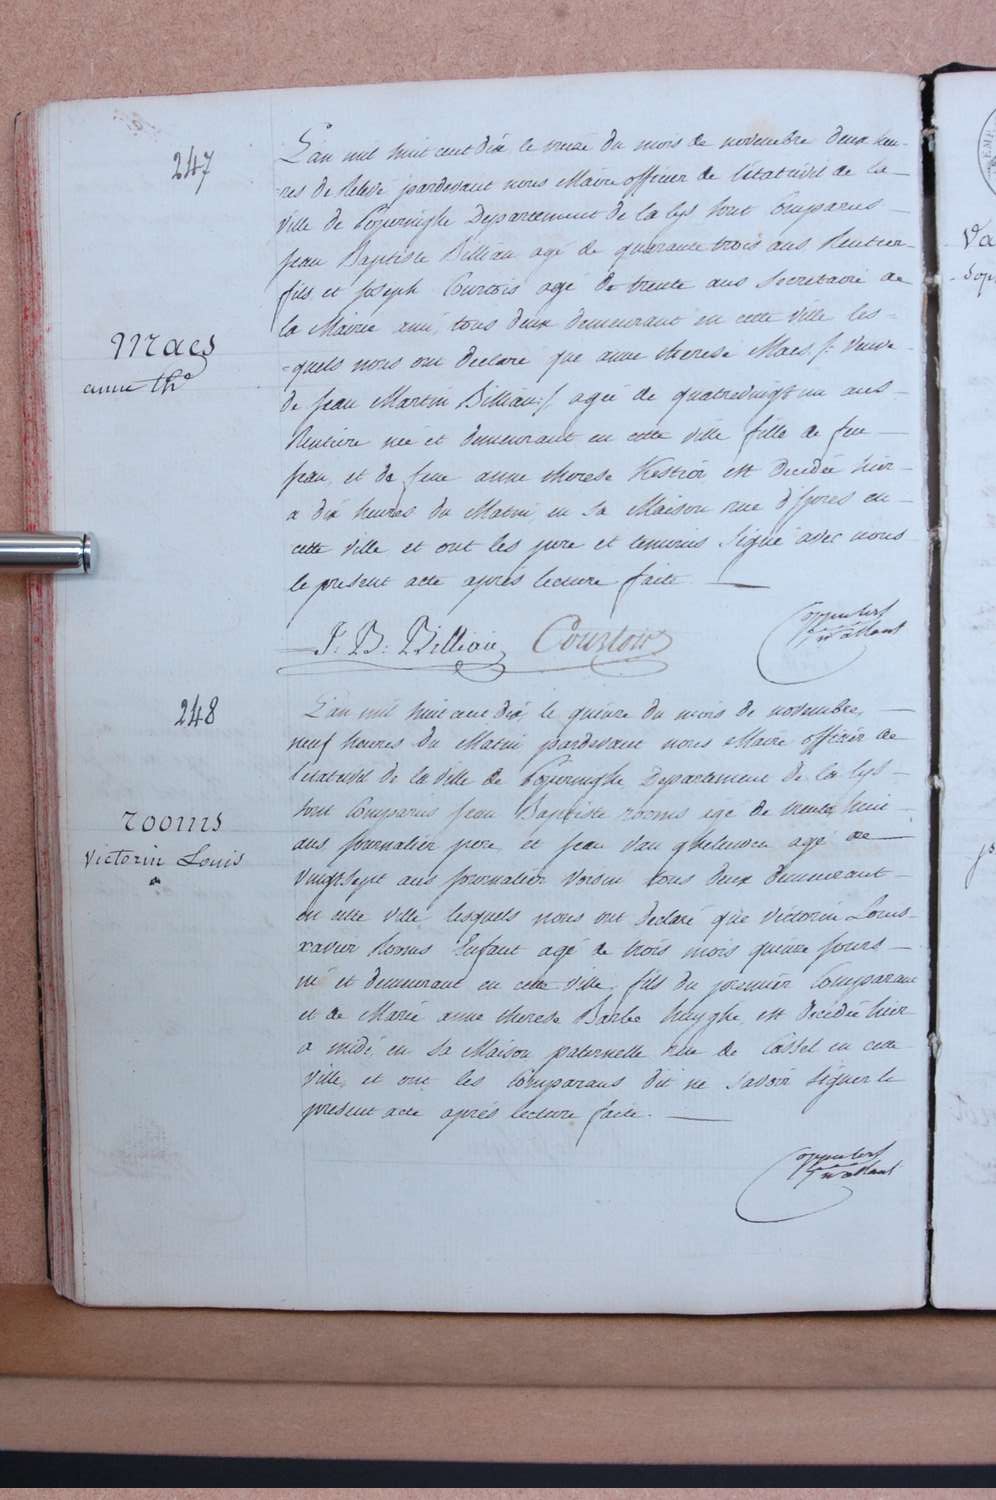 247
L'an mil huit cent dix le treize du mois de novembre deux heu-
-res de relevé pardevant nous Maire officier de l'etatcivil de la
ville de Poperinghe Departement de la lys sont Comparus
Jean Baptiste Billiau agé de quarante trois ans Rentier
fils, et Joseph Courtois agé de trente ans Secretaire de
la Mairie ami, tous deux demeurant en cette ville les-
-quels nous ont declaré que anne therese Maes /: Veuve
de Jean Martin Billiau :/ agée de quatrevingt un ans
Rentiere née et demeurant en cette ville fille de feu
Jean, et de feue anne therese est decidée hier
a dix heures du Matin, en sa Maison rue d'Ipres en
cette ville et ont les pere et temoins signé avec nous
le present acte après lecture faite
Maes
anne the
J: B: Billiau Courtois
248
L'an mil huit cent dix, le quinze du mois de novembre,
neuf heures du Matin pardevant nous Maire officier de
l'etatcivil de la ville de Poperinghe Departement de la lys
sont Comparus Jean Baptiste rooms agé de trente huit
ans Journalier pere, et Jean Van gheluwen agé de
vingt sept ans Journalier Voisin tous deux demeurant
en cette ville lesquels nous ont declaré que victorin Louis
xavier Rooms Enfant agé de trois mois quinze jours
né et demeurant en cette ville, fils du premier Comparant
et de Marie anne therese Barbe huyghe, est decidé hier
a midi, en sa Maison paternelle rue de Cassel en cette
ville, et ont les Comparans dit ne savoir signer le
present acte aprés lecture faite.
rooms
Victorin Louis